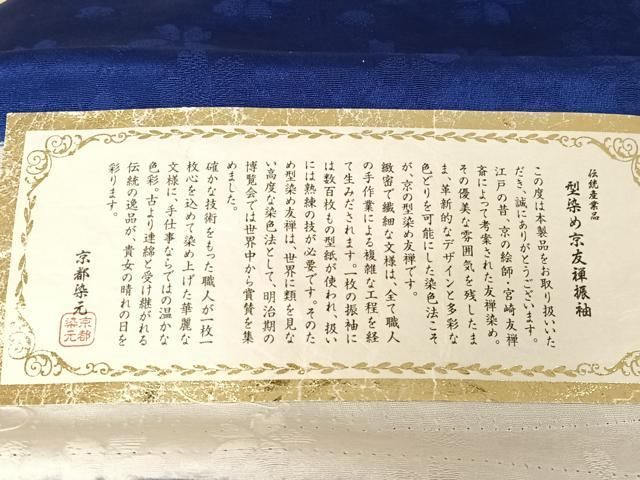 伝統産業品
型染め京友禅振袖
この度は本製品をお取り扱いいた
だき、誠にありがとうございます。
江戸の昔、京の絵師・宮崎友禅
斎によって考案された友禅染め。
その優美な雰囲気を残したま
ま、革新的なデザインと多彩な
色どりを可能にした染色法こそ
が、京の型染め友禅です。
緻密で繊細な文様は、全て職人
の手作業による複雑な工程を経
て生みだされます。一枚の振袖に
は数百枚もの型紙が使われ、扱い
には熟練の技が必要です。そのた
め型染め友禅は、世界に類を見な
い高度な染色法として、明治期の
博覧会では世界中から賞賛を集
めました。
確かな技術をもった職人が一枚一
枚心を込めて染め上げた華麗な
文様に、手仕事ならではの温かな
色彩。古より連綿と受け継がれる
伝統の逸品が、貴女の晴れの日を
彩ります。
京都染元
京都
染元